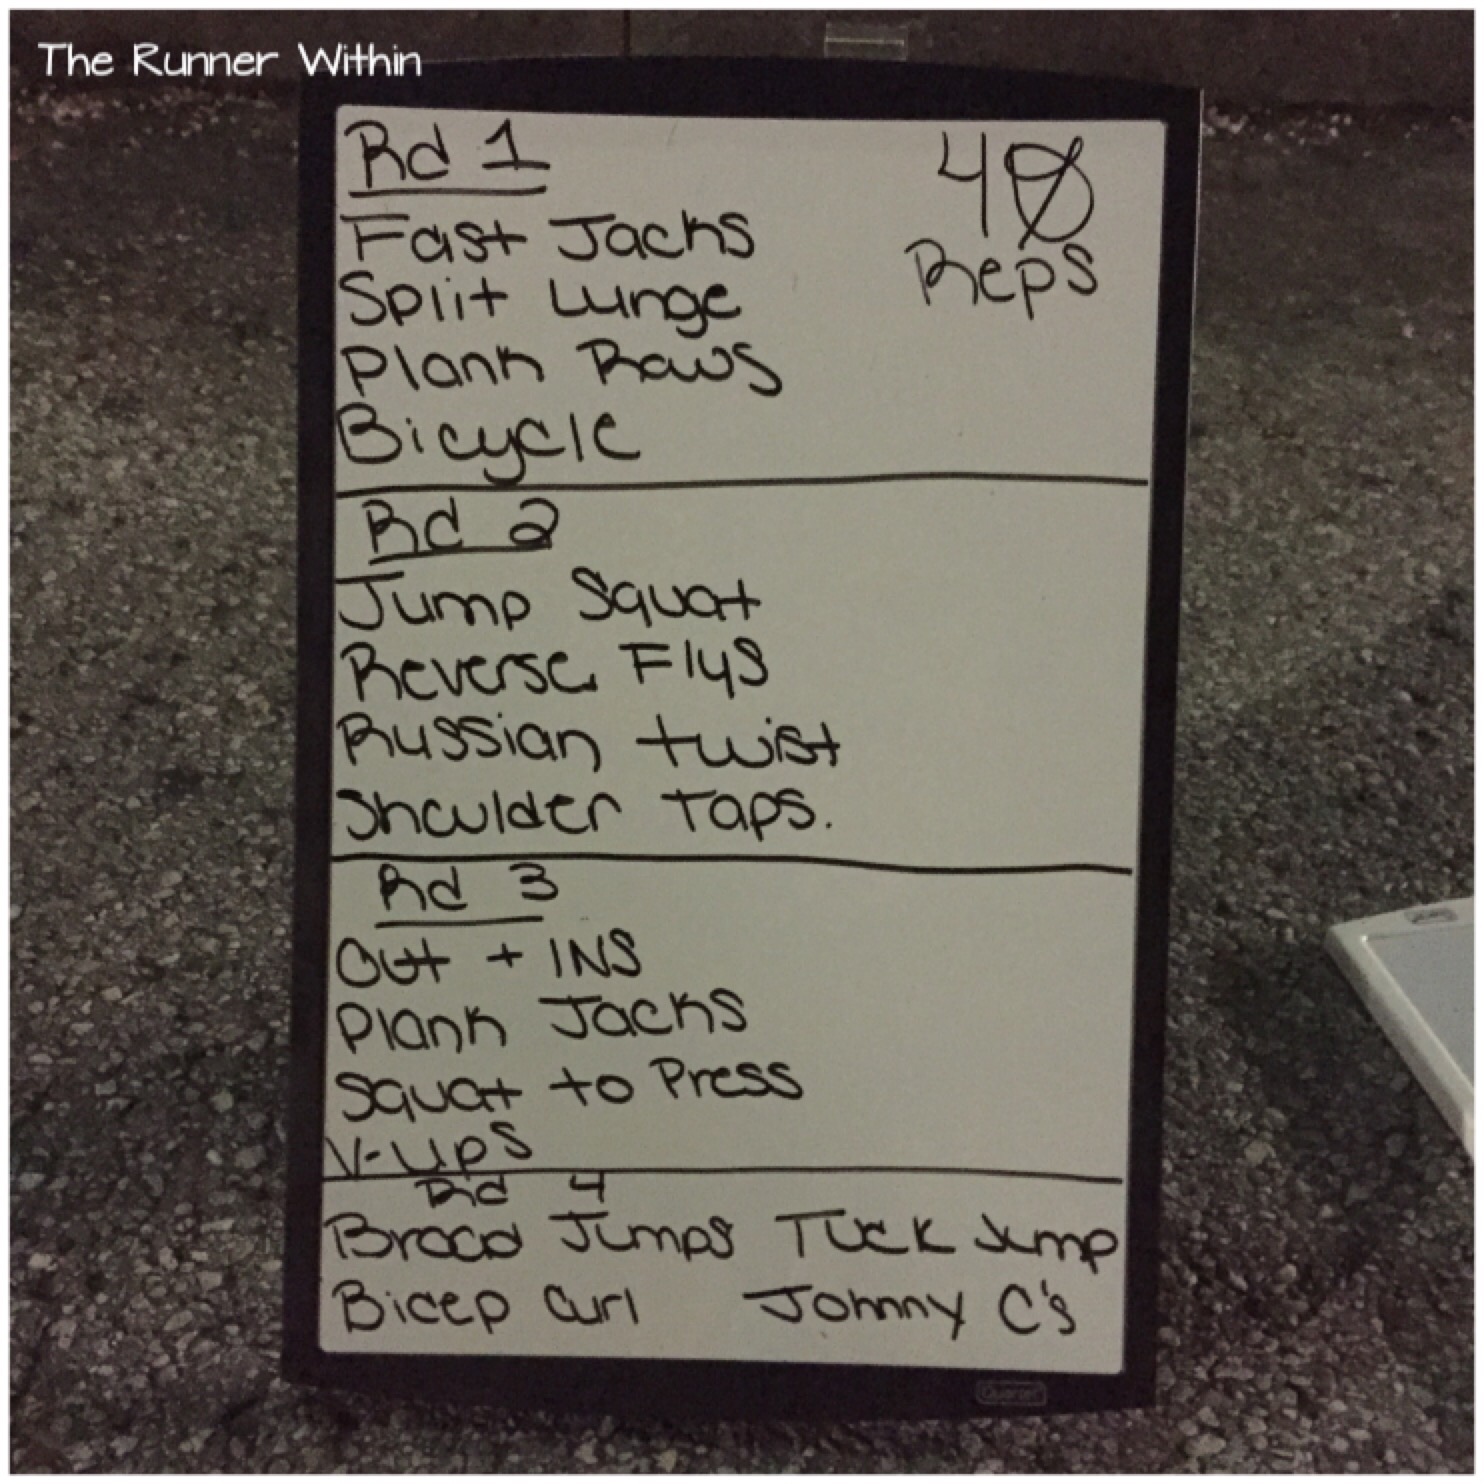 The Runner Within
Rd 1
40
Reps
Fast Jacks
Split Lunge
Plank Rows
Bicycle
Rd 2
Jump Squat
Reverse Flys
Russian twist
Shoulder Taps.
Rd 3
Out + INS
Plank Jacks
Squat to Press
V-UPS
Rd 4
Broad Jumps Tuck Jump
Bicep Curl Johnny C's
Quartet